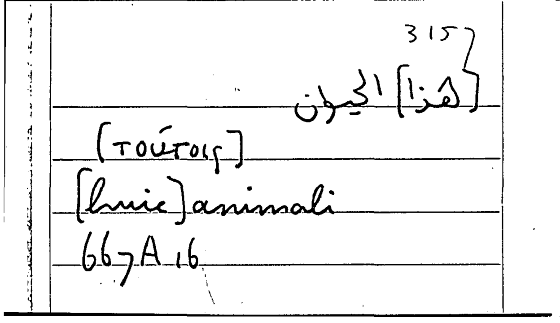 315
[هذا] الحيوان
[τούτοις]
[huic] animali
667A16